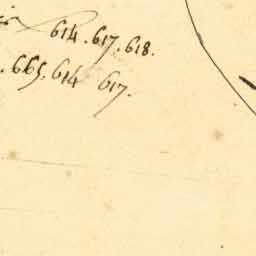 614. 617. 618.
. 665. 614 617.